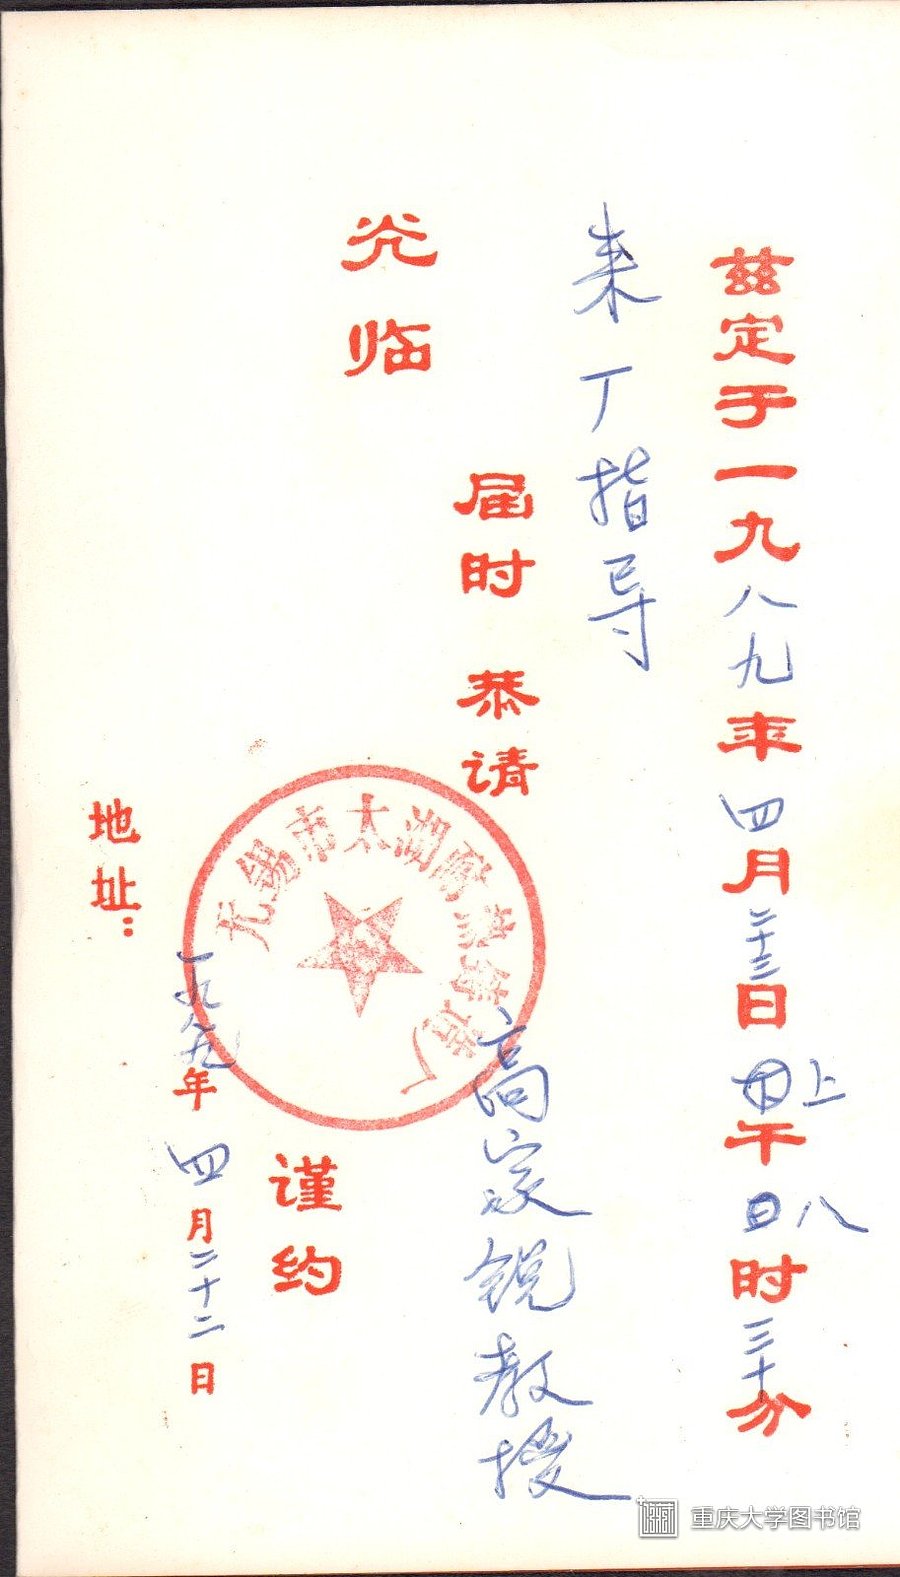 兹定于一九八九年四月二十三日上午八时三十分
来厂指导
届时 恭请 高家锐教授
光临
无锡市太湖耐热铸造厂
谨约
一九八九年四月二十二日
地址:
重庆大学图书馆